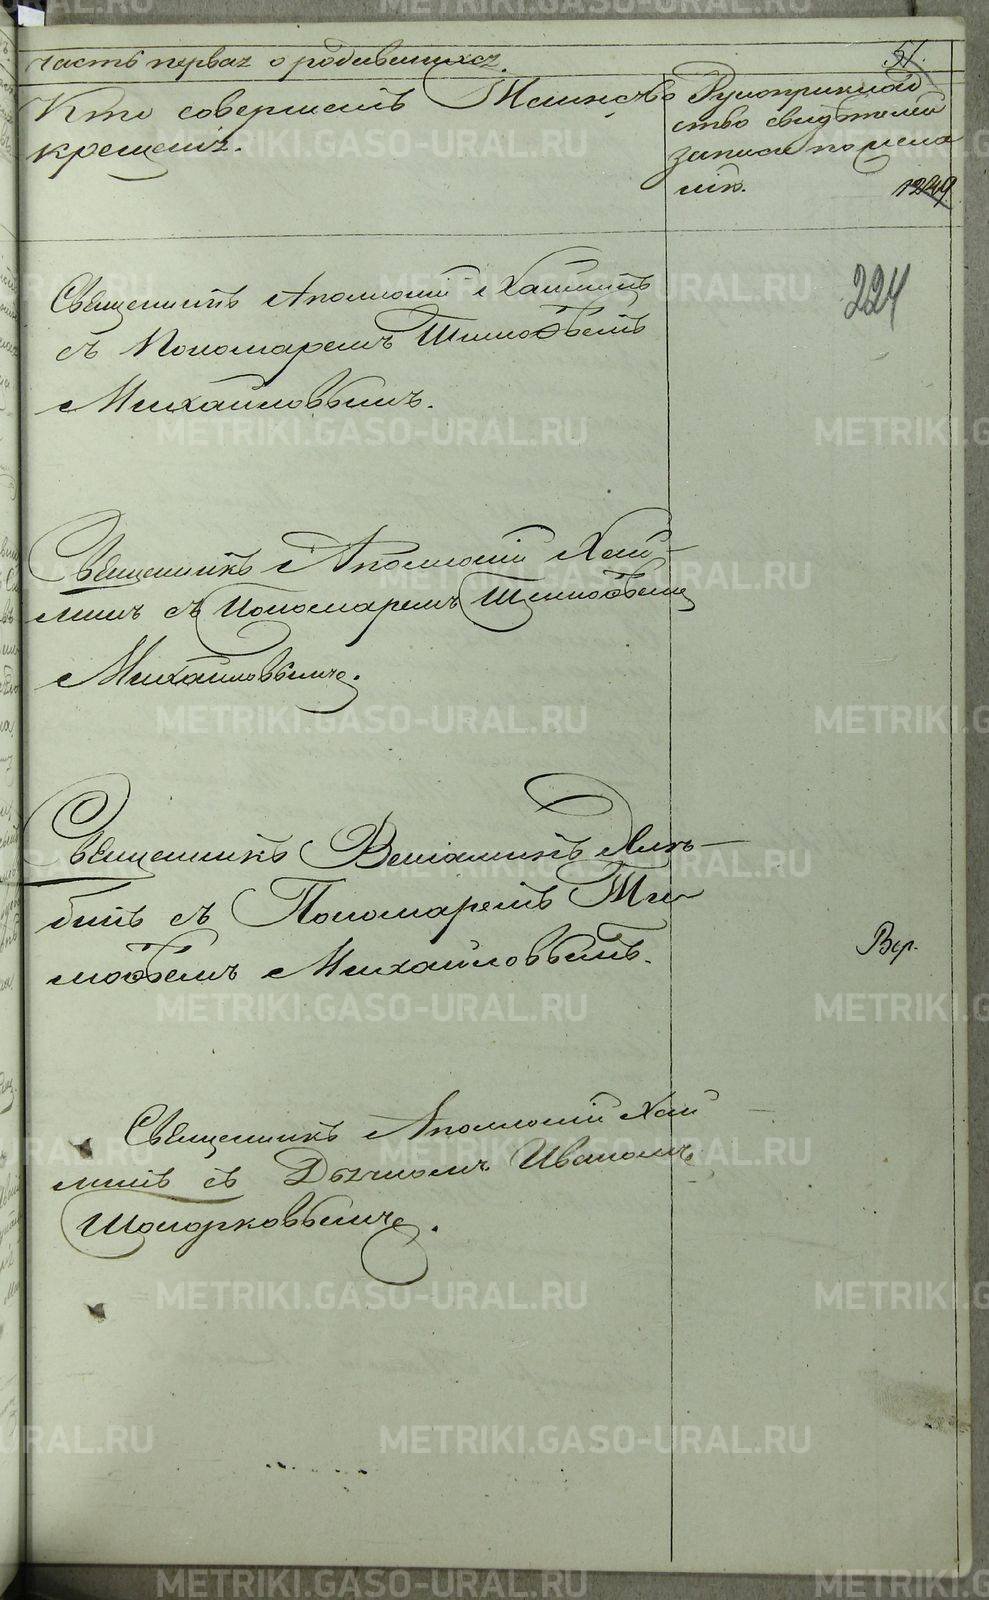 Часть первая о родившихся.
51.
Кто совершалъ Таинство
крещенія.
Рукоприклад
ство свидѣтелей
записи по жела
нію.
1249
224
Священникъ Аполлоній Хлынинъ
съ Пономаремъ Тимофѣемъ
Михайловымъ.
Священникъ Аполлоній
съ Пономаремъ Тимофѣемъ
Михайловымъ.
Священникъ Веніаминъ
съ Пономаремъ Ти
мофѣемъ Михайловымъ.
Вер.
Священникъ Аполлоній
съ Дьячкомъ Иваномъ
Топорковымъ.
METRIKI.GASO-URAL.RU